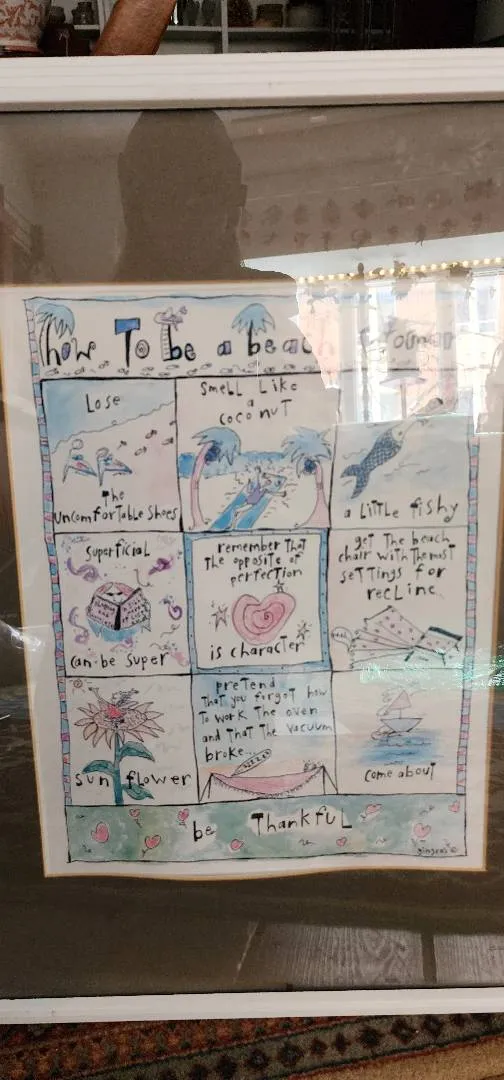 how To be a beach Woman
Lose
The
uncomforTable shoes
smell Like
a
coconuT
a LiTTLe fishy
superficiaL
can be super
remember ThaT
The opposiTe of
perfecTion
is characTer
geT The beach
chair wiTh The mosT
seTTings for
recLine
sun flower
preTend
ThaT you forgoT how
To work The oven
and ThaT The vacuum
broke...
come abouT
be ThankfuL